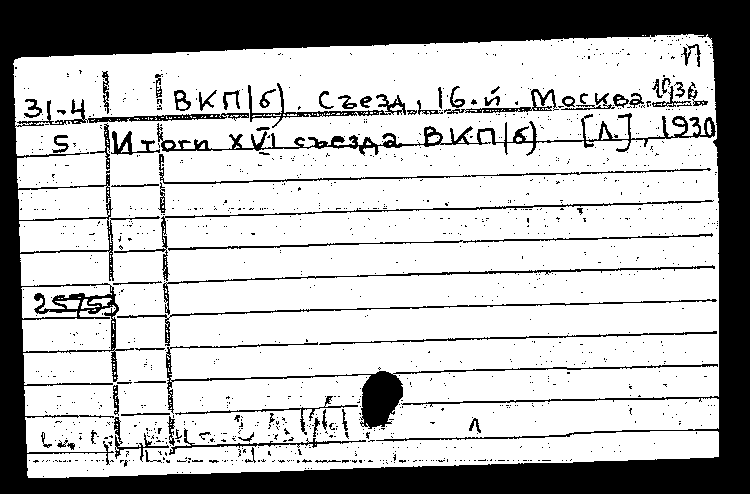 П
31-4 ВКП(б). Съезд, 16-й. Москва 1930
5 Итоги XVI съезда ВКП(б) [Л.], 1930
25753
Л